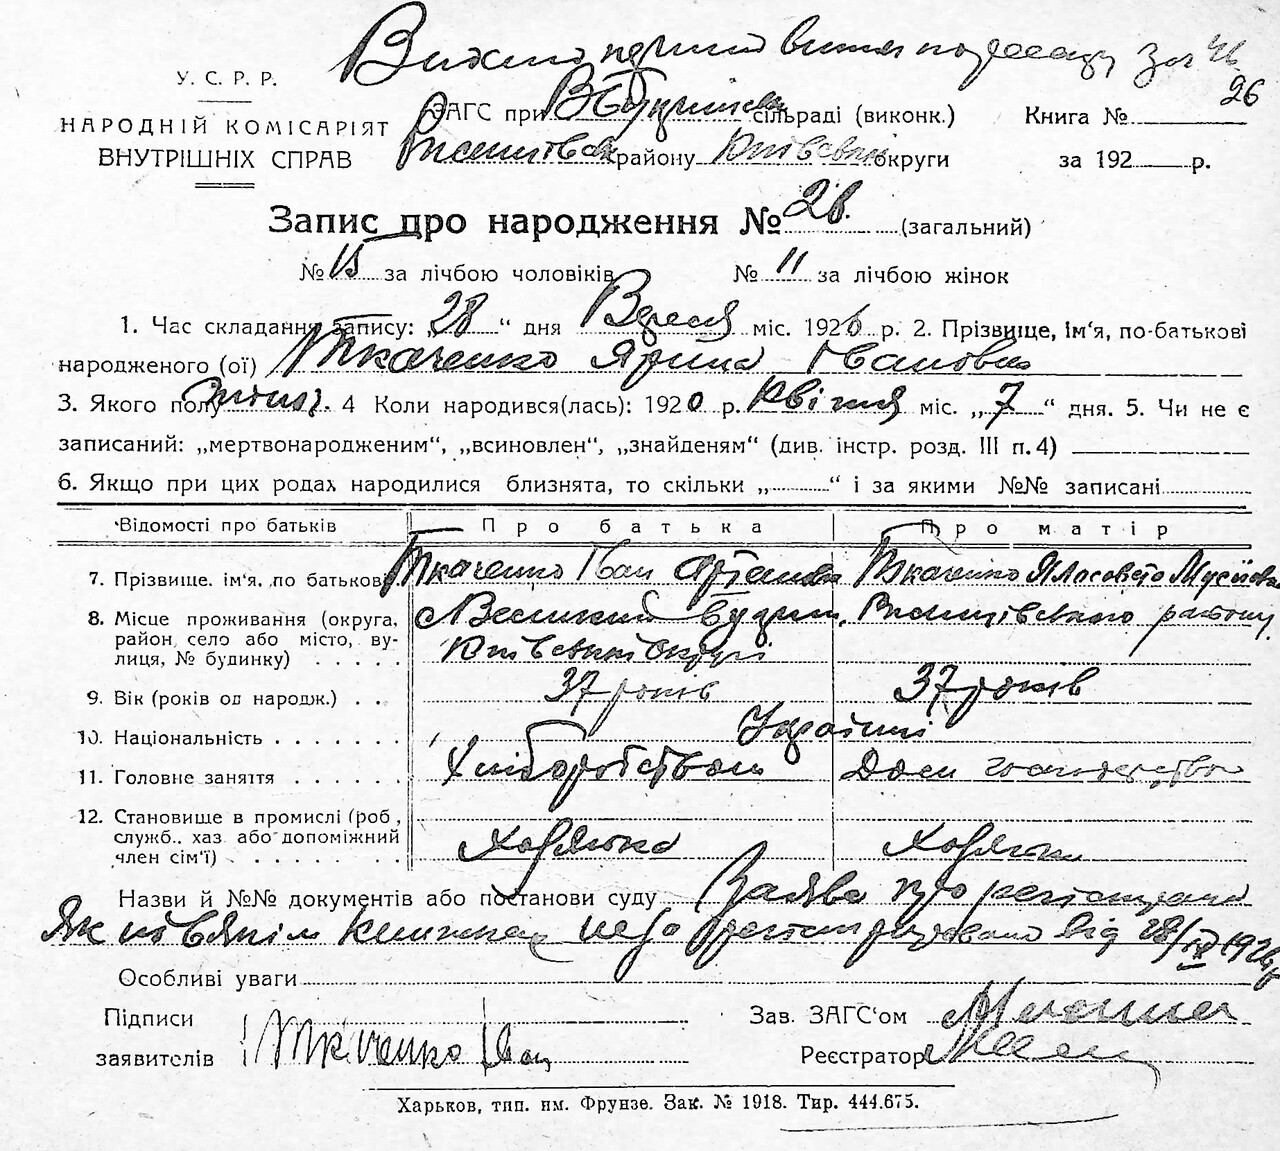 У. С. Р. Р.
НАРОДНІЙ КОМІСАРІЯТ
ВНУТРІШНІХ СПРАВ
26
ЗАГС при В Будищан сільраді (виконк.)
району Київської округи
Книга №
за 192 р.
Запис про народження № 26. (загальний)
№ 15 за лічбою чоловіків № 11 за лічбою жінок
1. Час складання запису: „28“ дня Вересня міс. 1926 р. 2. Прізвище, ім‘я, по-батькові
народженого (ої) Ткаченко Ярина Івановна
3. Якого полу жіноч. 4 Коли народився(лась): 1920 р. Квітня міс. „7“ дня. 5. Чи не є
записаний: „мертвонародженим“, „всиновлен“, „знайденям“ (див. інстр. розд. III п. 4)
6. Якщо при цих родах народилися близнята, то скільки „ “ і за якими №№ записані
Відомості про батьків Про батька Про матір
7. Прізвище. ім‘я, по батькові Ткаченко Іван Ткаченко Мусіївна
8. Місце проживання (округа, район, село або місто, вулиця, № будинку) Великий Київської округи району
9. Вік (років од народж.) 37 років 37 років
10. Національність Українці
11. Головне заняття Хліборобством Дом господарство
12. Становище в промислі (роб, служб., хаз або допоміжний член сім‘ї) Хазяїка Хазяїка
Назви й №№ документів або постанови суду Заява про
Як від 28/IX 1926 р
Особливі уваги
Підписи
заявителів Ткаченко Іван
Зав. ЗАГС‘ом
Реєстратор
Харьков, тип. им. Фрунзе. Зак. № 1918. Тир. 444.675.